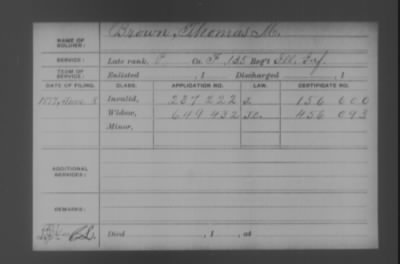 NAME OF SOLDIER: Brown, Thomas M.
SERVICE: Late rank, P Co. F, 135 Reg't Ill. Inf.
TERM OF SERVICE: Enlisted , 1 Discharged , 1
DATE OF FILING. CLASS. APPLICATION NO. LAW. CERTIFICATE NO.
1877, 8 Invalid, 237 222 156 600
Widow, 649 432 456 093
Minor,
ADDITIONAL SERVICES:
REMARKS:
Died , 1 , at